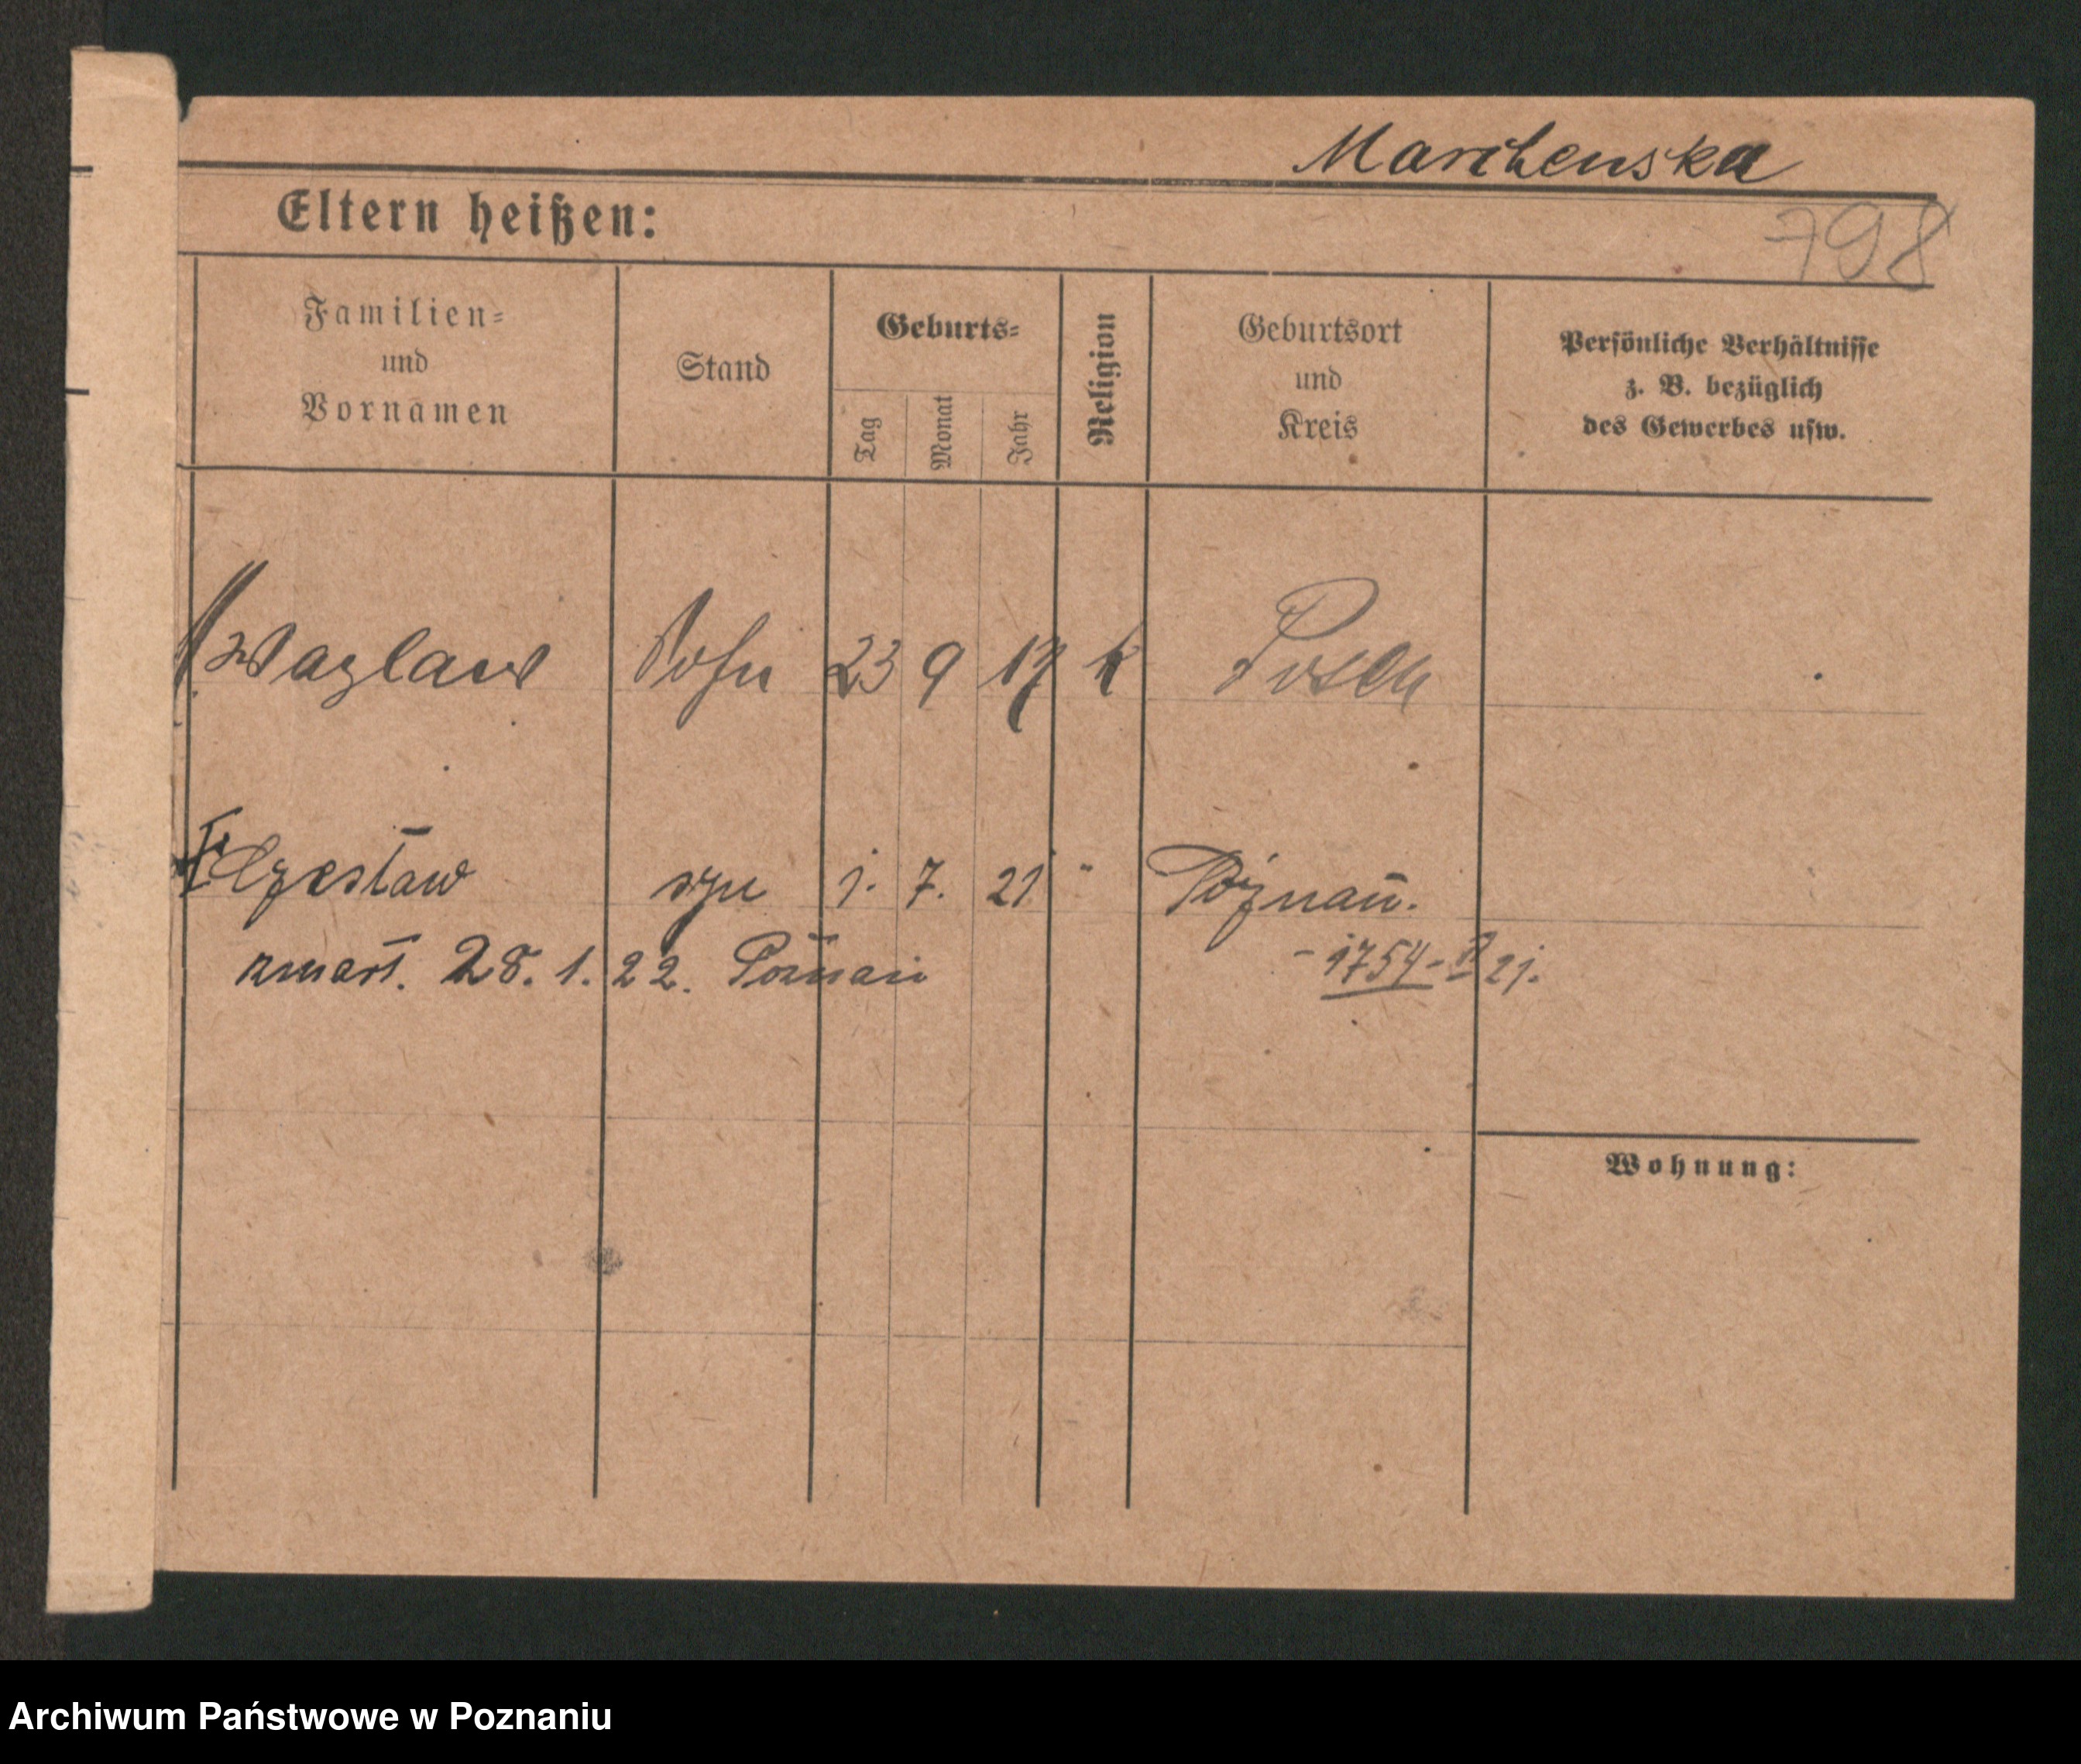 Marchenska
Eltern heißen:
798
Familien-
und
Vornamen
Stand
Geburts-
Tag
Monat
Jahr
Religion
Geburtsort
und
Kreis
Persönliche Verhältnisse
z. B. bezüglich
des Gewerbes usw.
Wazlaw Sohn 23 9 17 k Posen
Czesław syn 1. 7. 21 " Poznań.
zmarł. 28. 1. 22. Poznań
- 1754 - 21.
Wohnung:
Archiwum Państwowe w Poznaniu